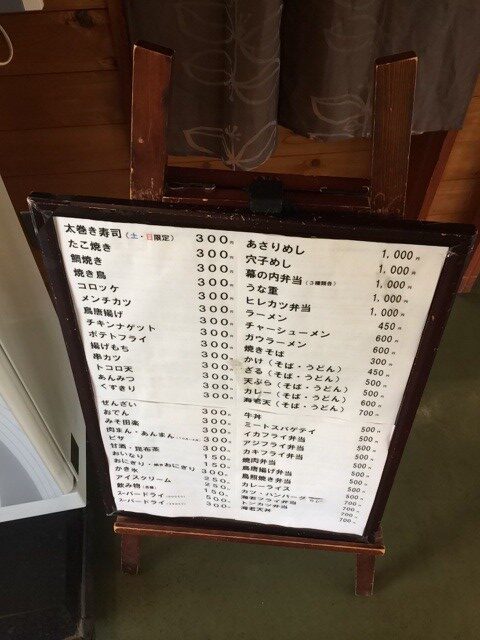 太巻き寿司（土・日限定） 300円
たこ焼き 300円
鯛焼き 300円
焼き鳥 300円
コロッケ 300円
メンチカツ 300円
鳥唐揚げ 300円
チキンナゲット 300円
ポテトフライ 300円
揚げもち 300円
串カツ 300円
トコロ天 300円
あんみつ 300円
くずきり 300円
ぜんざい
おでん 300円
みそ田楽 300円
肉まん・あんまん
ピザ 300円
甘酒・昆布茶 300円
おいなり 150円
おにぎり・おにぎり 150円
かき氷 300円
アイスクリーム 250円
飲み物 150円
スーパードライ 500円
スーパードライ 300円
あさりめし 1,000円
穴子めし 1,000円
幕の内弁当（３種類有り） 1,000円
うな重 1,000円
ヒレカツ弁当
ラーメン 450円
チャーシューメン 600円
ガウラーメン 600円
焼きそば 300円
かけ（そば・うどん） 450円
ざる（そば・うどん） 500円
天ぷら（そば・うどん） 500円
カレー（そば・うどん） 500円
海老天（そば・うどん） 700円
牛丼 500円
ミートスパゲテイ 500円
イカフライ弁当 500円
アジフライ弁当 500円
カキフライ弁当 500円
焼肉弁当 500円
鳥唐揚弁当 500円
鳥照焼き弁当 500円
カレーライス 500円
カツ・ハンバーグ
海老フライ弁当 700円
トンカツ弁当 700円
海老天丼 700円